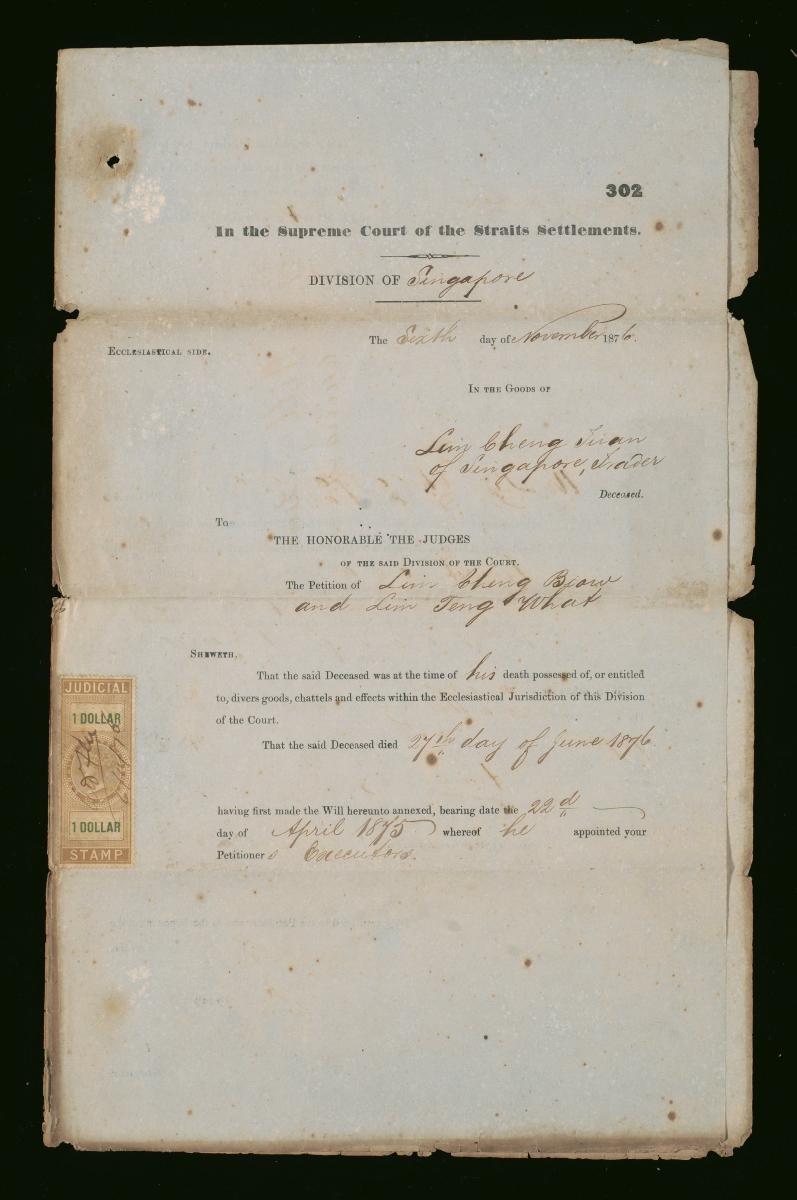 302
In the Supreme Court of the Straits Settlements.
DIVISION OF Singapore
The Sixth day of November 1876.
ECCLESIASTICAL SIDE.
IN THE GOODS OF
Lim Cheng Tuan
of Singapore, Trader
Deceased.
To
THE HONORABLE THE JUDGES
OF THE SAID DIVISION OF THE COURT.
The Petition of Lim Cheng Beow
and Lim Teng What
SHEWETH.
That the said Deceased was at the time of his death possessed of, or entitled
to, divers goods, chattels and effects within the Ecclesiastical Jurisdiction of this Division
of the Court.
That the said Deceased died 27th day of June 1876
having first made the Will hereunto annexed, bearing date the 22d
day of April 1875 whereof he appointed your
Petitioners Executors.
JUDICIAL
1 DOLLAR
1 DOLLAR
STAMP